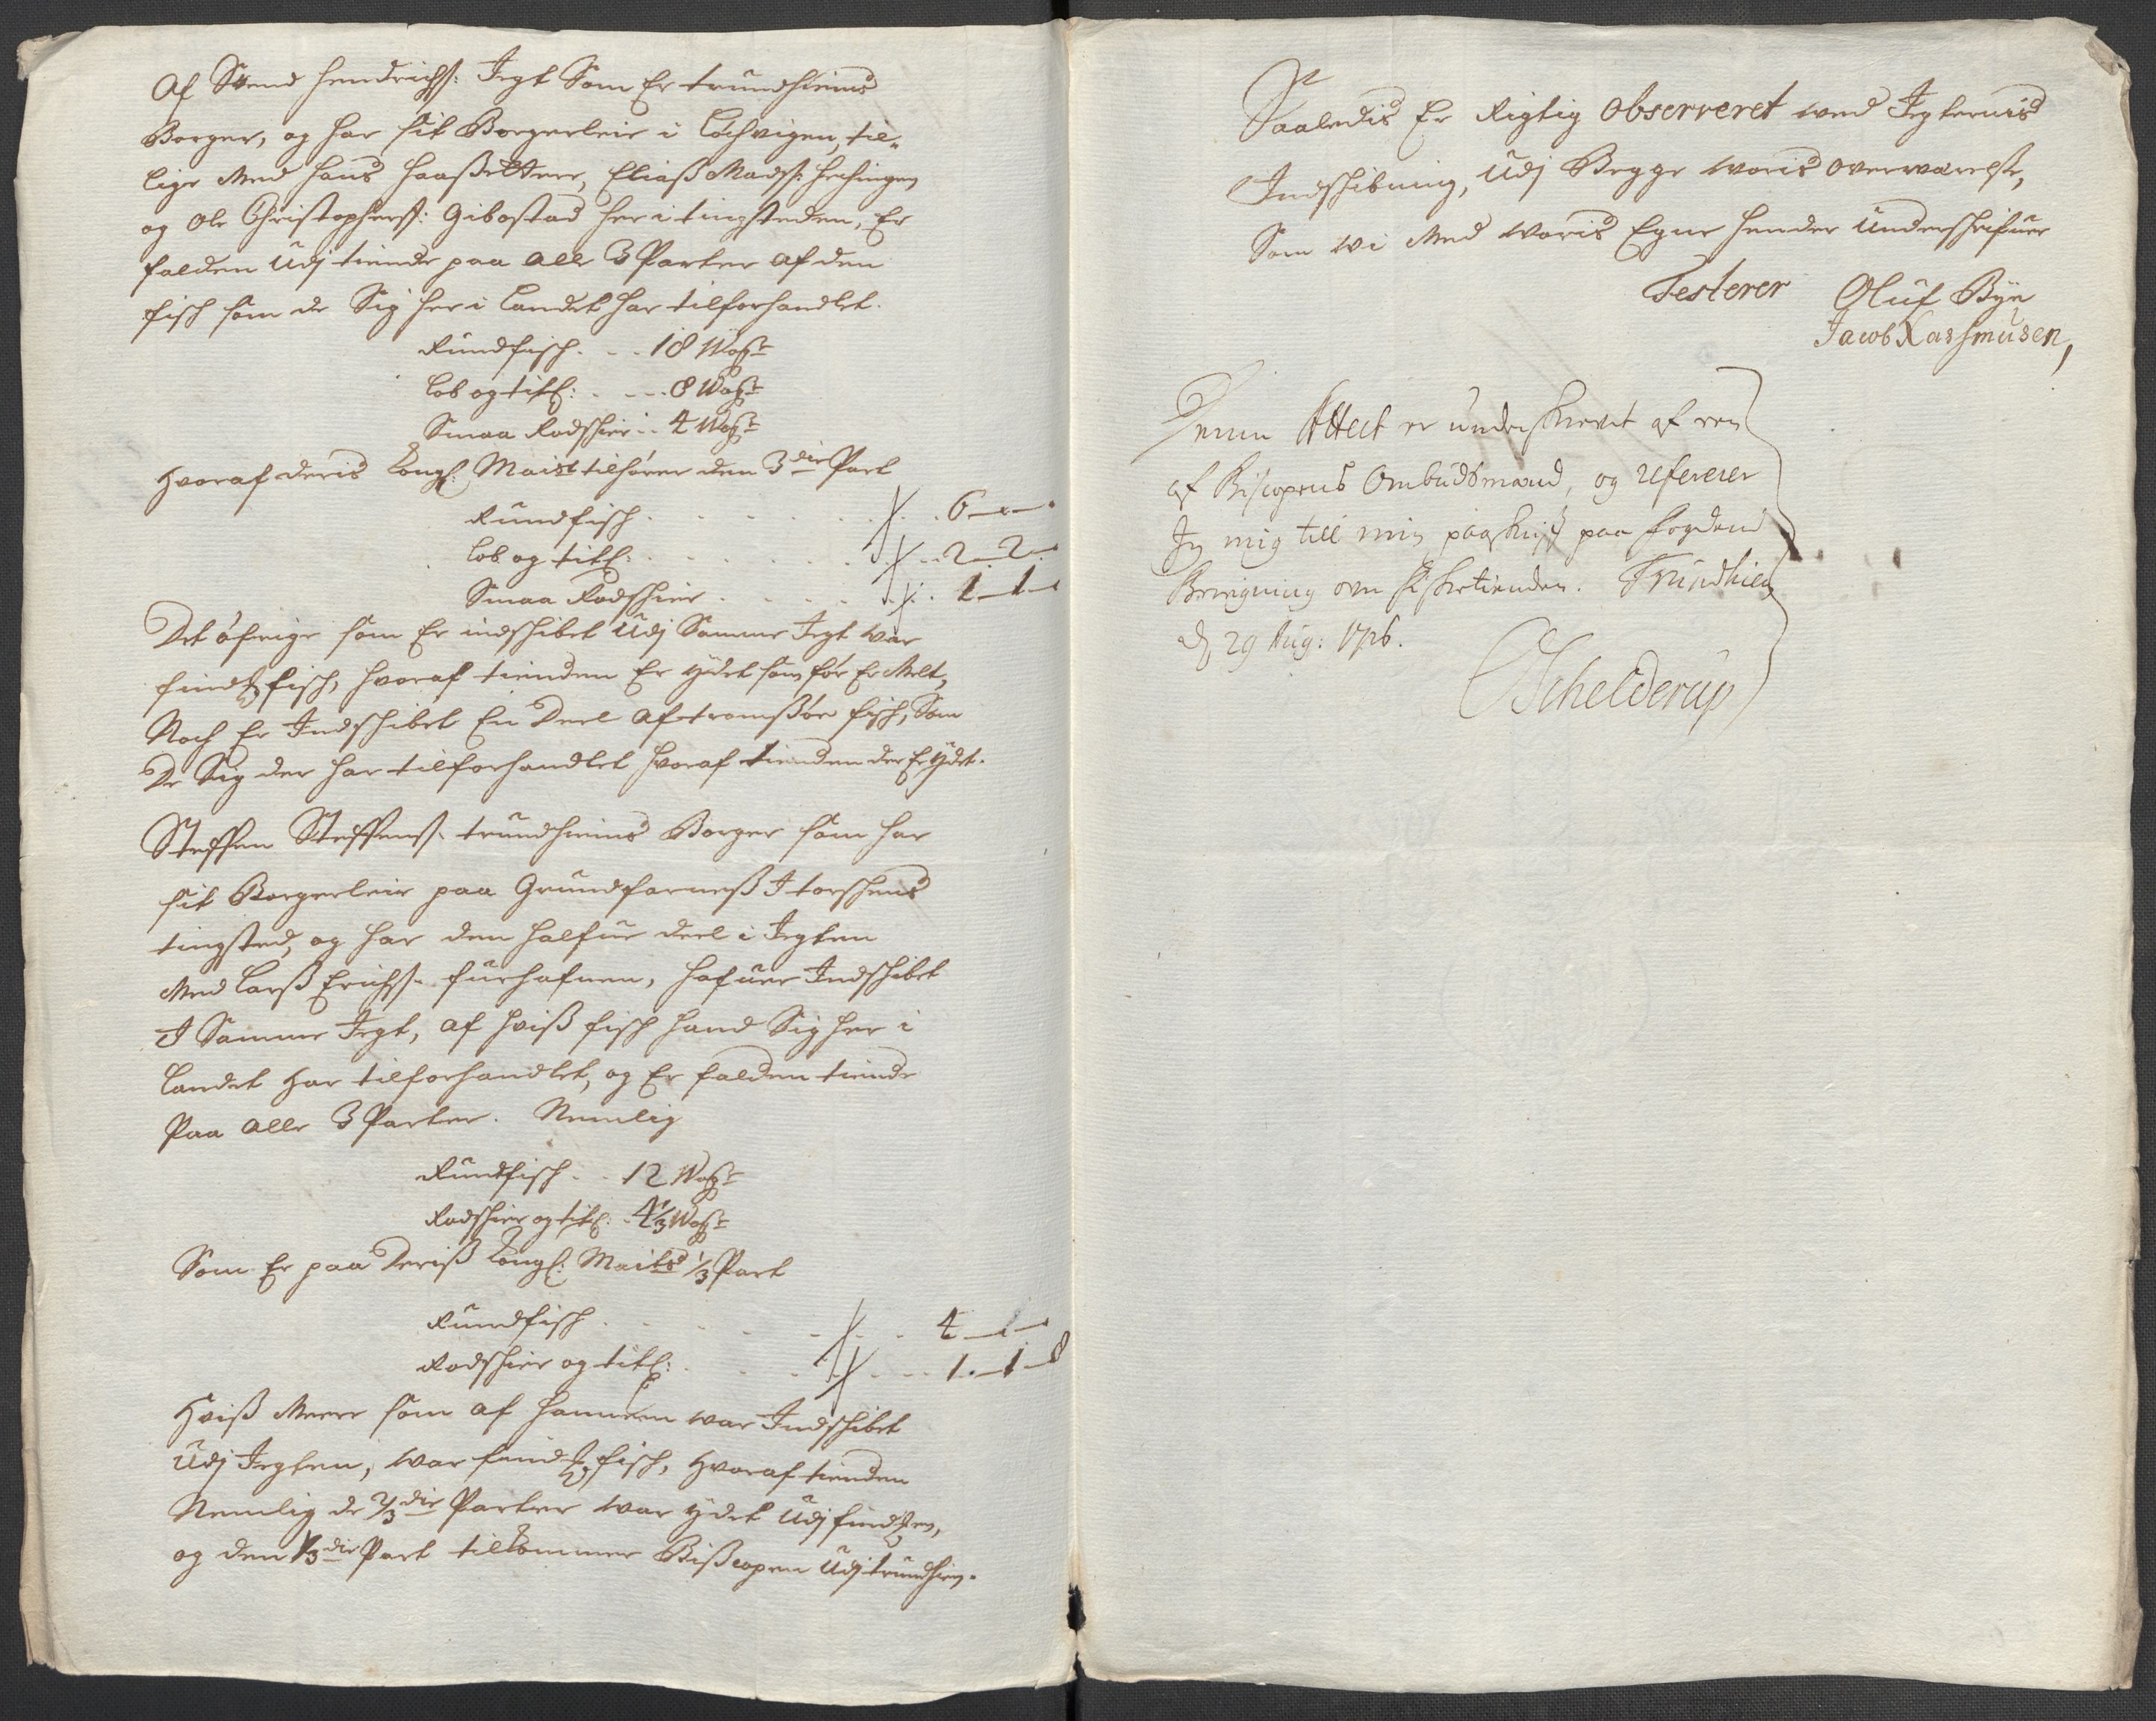 Af Svend Hendrichs: Jegt Som Er trundhiems
Borger, og har sit Borgerleie i Lochvigen, til-
lige Med hans Haaßetter, Eliaß Mads:
og Ole Christophers: Gibostad her i tingsteden, Er
falden Udj tiende paa alle 3 Parter af den
fisch som de Sig her i Landet har tilforhandlet.
Rundfisch . . . 18 Woger
Lob og titl: . . . 8 Woger
Smaa Rodschier . . 4 Woger
Hvoraf deris Kongl: Maist tilhører den 3die Part
Rundfisch . . . 6 — —
Lob og titl: . . . 2 — 2 —
Smaa Rodschier . . . 1 — 1 —
Det öfrige som Er indschibet Udj Samme Jegt war
find: fisch, hvoraf tienden Er ydet som før Er Melt,
Noch Er Indschibet En Deel af tromßöe fisch, Som
De Sig der har tilforhandlet hvoraf tienden der Er ydet.
Steffen Steffens: trundhiems Borger som har
sit Borgerleie paa Grundfarneß I torschens
tingsted, og har den halfue deel i Jegten
Med Larß Erichs: furhafnen, hafuer Indschibet
I Samme Jegt, af hviß fisch hand Sig her i
Landet har tilforhandlet, og Er falden tiende
Paa alle 3 Parter. Nemlig
Rundfisch . . 12 Woger
Rodschier og titl: . 4 1/3 Woger
Som Er paa Deriß Kongl: Maits 1/3 Part
Rundfisch . . . 4 — —
Rodschier og titl: . . . 1 — 1 — 8
Hviß Meere som af hannem war Indschibet
Udj Jegten, war find: fisch, hvoraf tienden
Nemlig de 2/3die Parter war ydet Udj
og den 1/3die Part tilkommer Bißcopen Udj trundhiem.
Saaledis Er Rigtig Observeret wed Jegternis
Indschibning, Udj Begge woris overwærelse,
Som wi Med woris Egne hender Underschrifuer
Testerer Oluf Bÿe
Jacob Rasmusen,
Denne Attest er underskrevet af een
af Biscopens Ombudsmænd, og refererer
Jeg mig till min paaskrift paa fogdens
Beregning om fisketienden. Trundhiem
d 29 Aug: 1716.
Schelderup